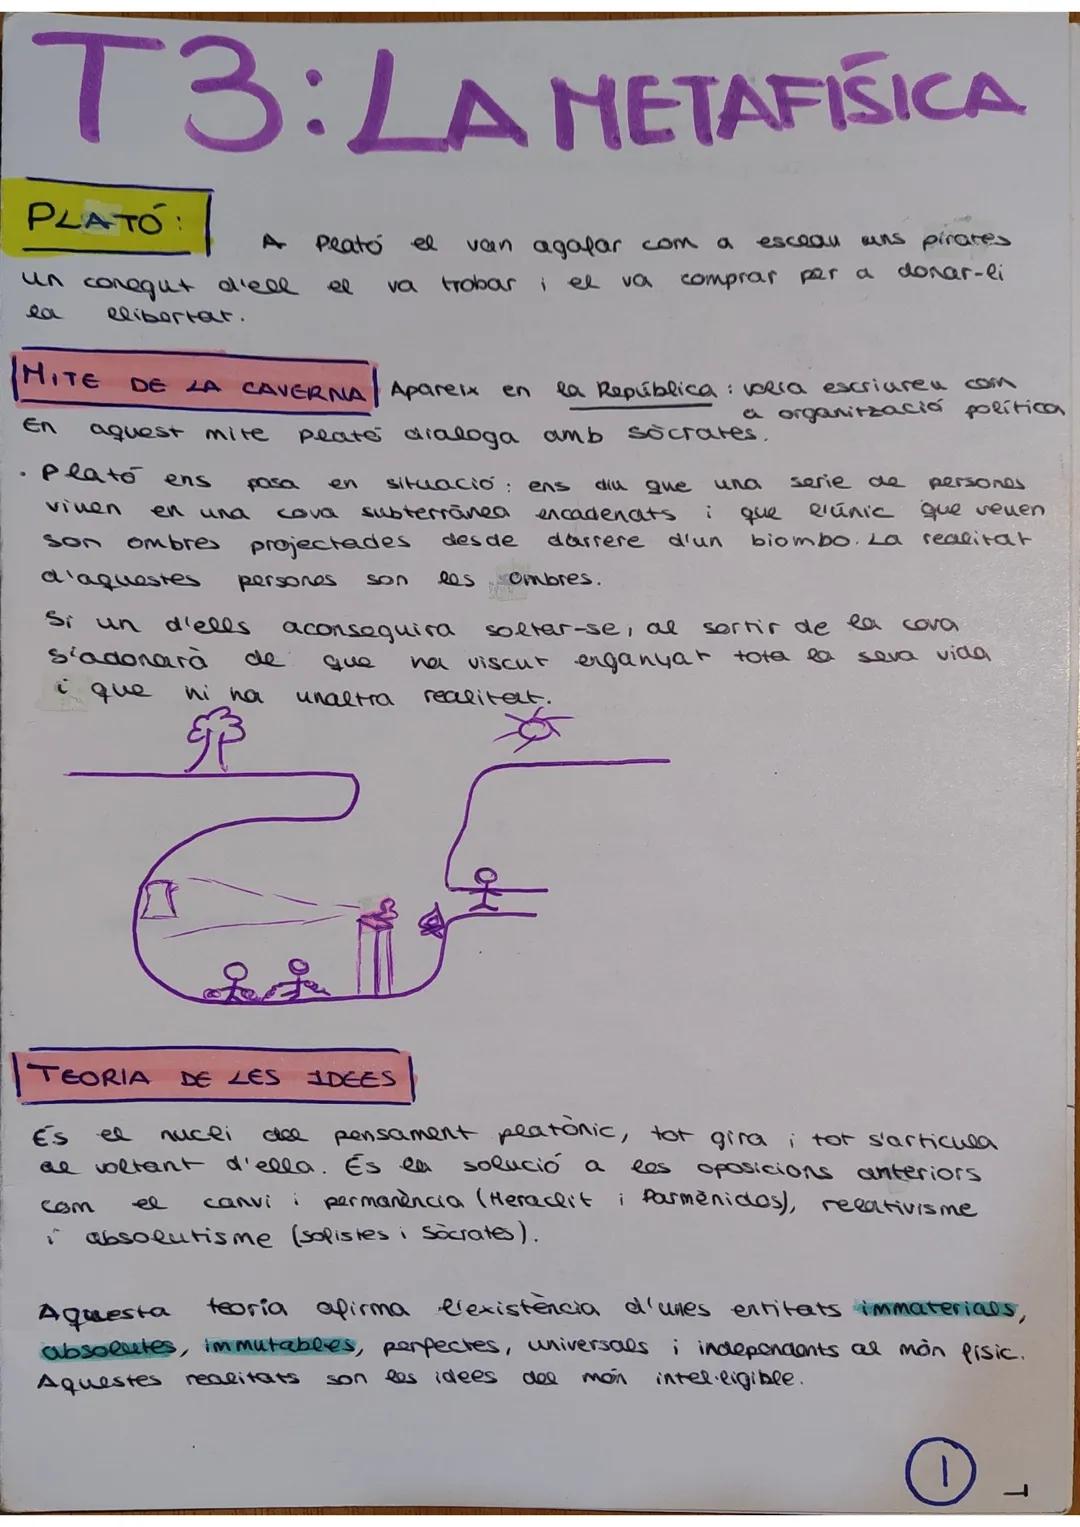 T3: LA METAFÍSICA
PLATÓ:
A Plató el van agafar com a esclau uns pirates
un conegut d'ell el va trobar i el va comprar per a donar-li
la llibertat.
MITE DE LA CAVERNA Apareix en la República: volia escriure com
a organització política
En aquest mite Plató dialoga amb Sòcrates.
· Plató ens posa en situació: ens diu que una serie de persones
viuen en una cova subterrànea encadenats i que l'únic que veuen
son ombres projectades desde darrere d'un biombo. La realitat
d'aquestes persones son les ombres.
Si un d'ells aconseguira soltar-se, al sortir de la cova
s'adonarà de que ha viscut enganyat tota la seva vida
i que ni ha unaltra realitat.
TEORIA DE LES IDEES
És el nucli del pensament platònic, tot gira i tot s'articula
al voltant d'ella. És la solució a les oposicions anteriors
com el canvi i permanència (Heraclit i Parmènides), relativisme
i absolutisme (sofistes i Sòcrates).
Aquesta teoría afirma l'existència d'unes entitats immaterials,
absolutes, immutables, perfectes, universals i independents al món físic.
Aquestes realitats son les idees del món intel·ligible.
1
1